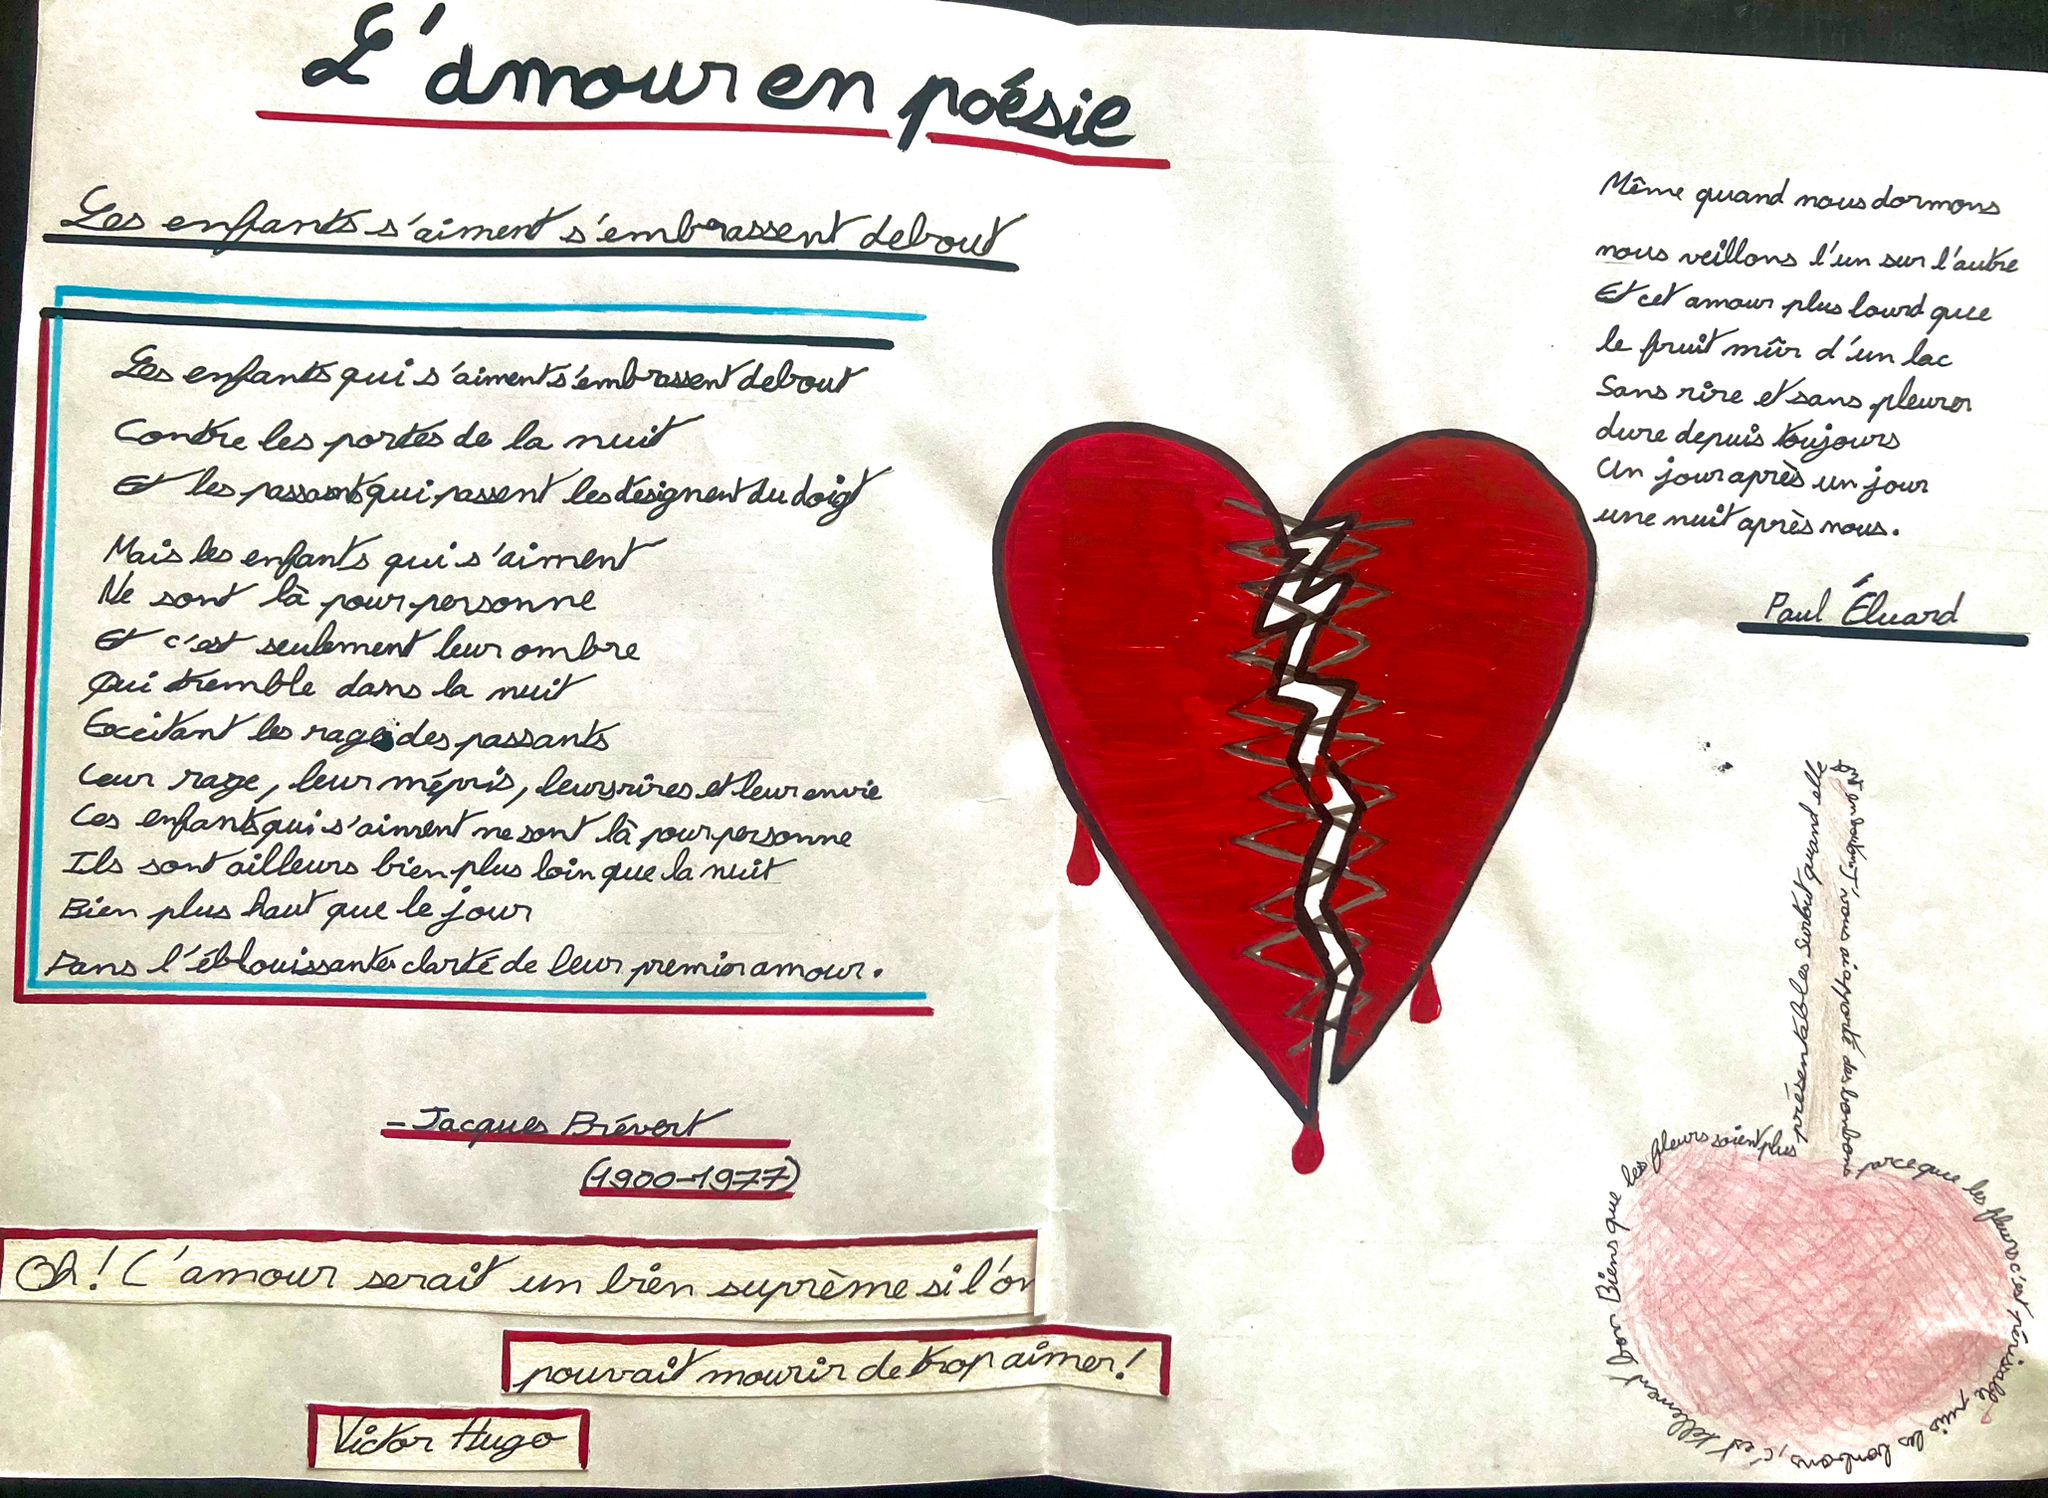 L'amour en poésie
Les enfants s'aiment s'embrassent debout
Les enfants qui s'aiment s'embrassent debout
Contre les portes de la nuit
Et les passants qui passent les désignent du doigt
Mais les enfants qui s'aiment
Ne sont là pour personne
Et c'est seulement leur ombre
Qui tremble dans la nuit
Excitant les rages des passants
Leur rage, leur mépris, leurs rires et leur envie
Les enfants qui s'aiment ne sont là pour personne
Ils sont ailleurs bien plus loin que la nuit
Bien plus haut que le jour
Dans l'éblouissante clarté de leur premier amour.
- Jacques Brévert
(1900-1977)
Oh! L'amour serait un bien suprème si l'on
pouvait mourir de trop aimer!
Victor Hugo
Même quand nous dormons
nous veillons l'un sur l'autre
Et cet amour plus lourd que
le fruit mûr d'un lac
Sans rire et sans pleurer
dure depuis toujours
Un jour après un jour
une nuit après nous.
Paul Éluard
bon Biens que les fleurs soient plus
présentables surtout quand elle
vous ai apporté des bonbons
parce que les fleurs c'est périssable
puis les bonbons, c'est tellement